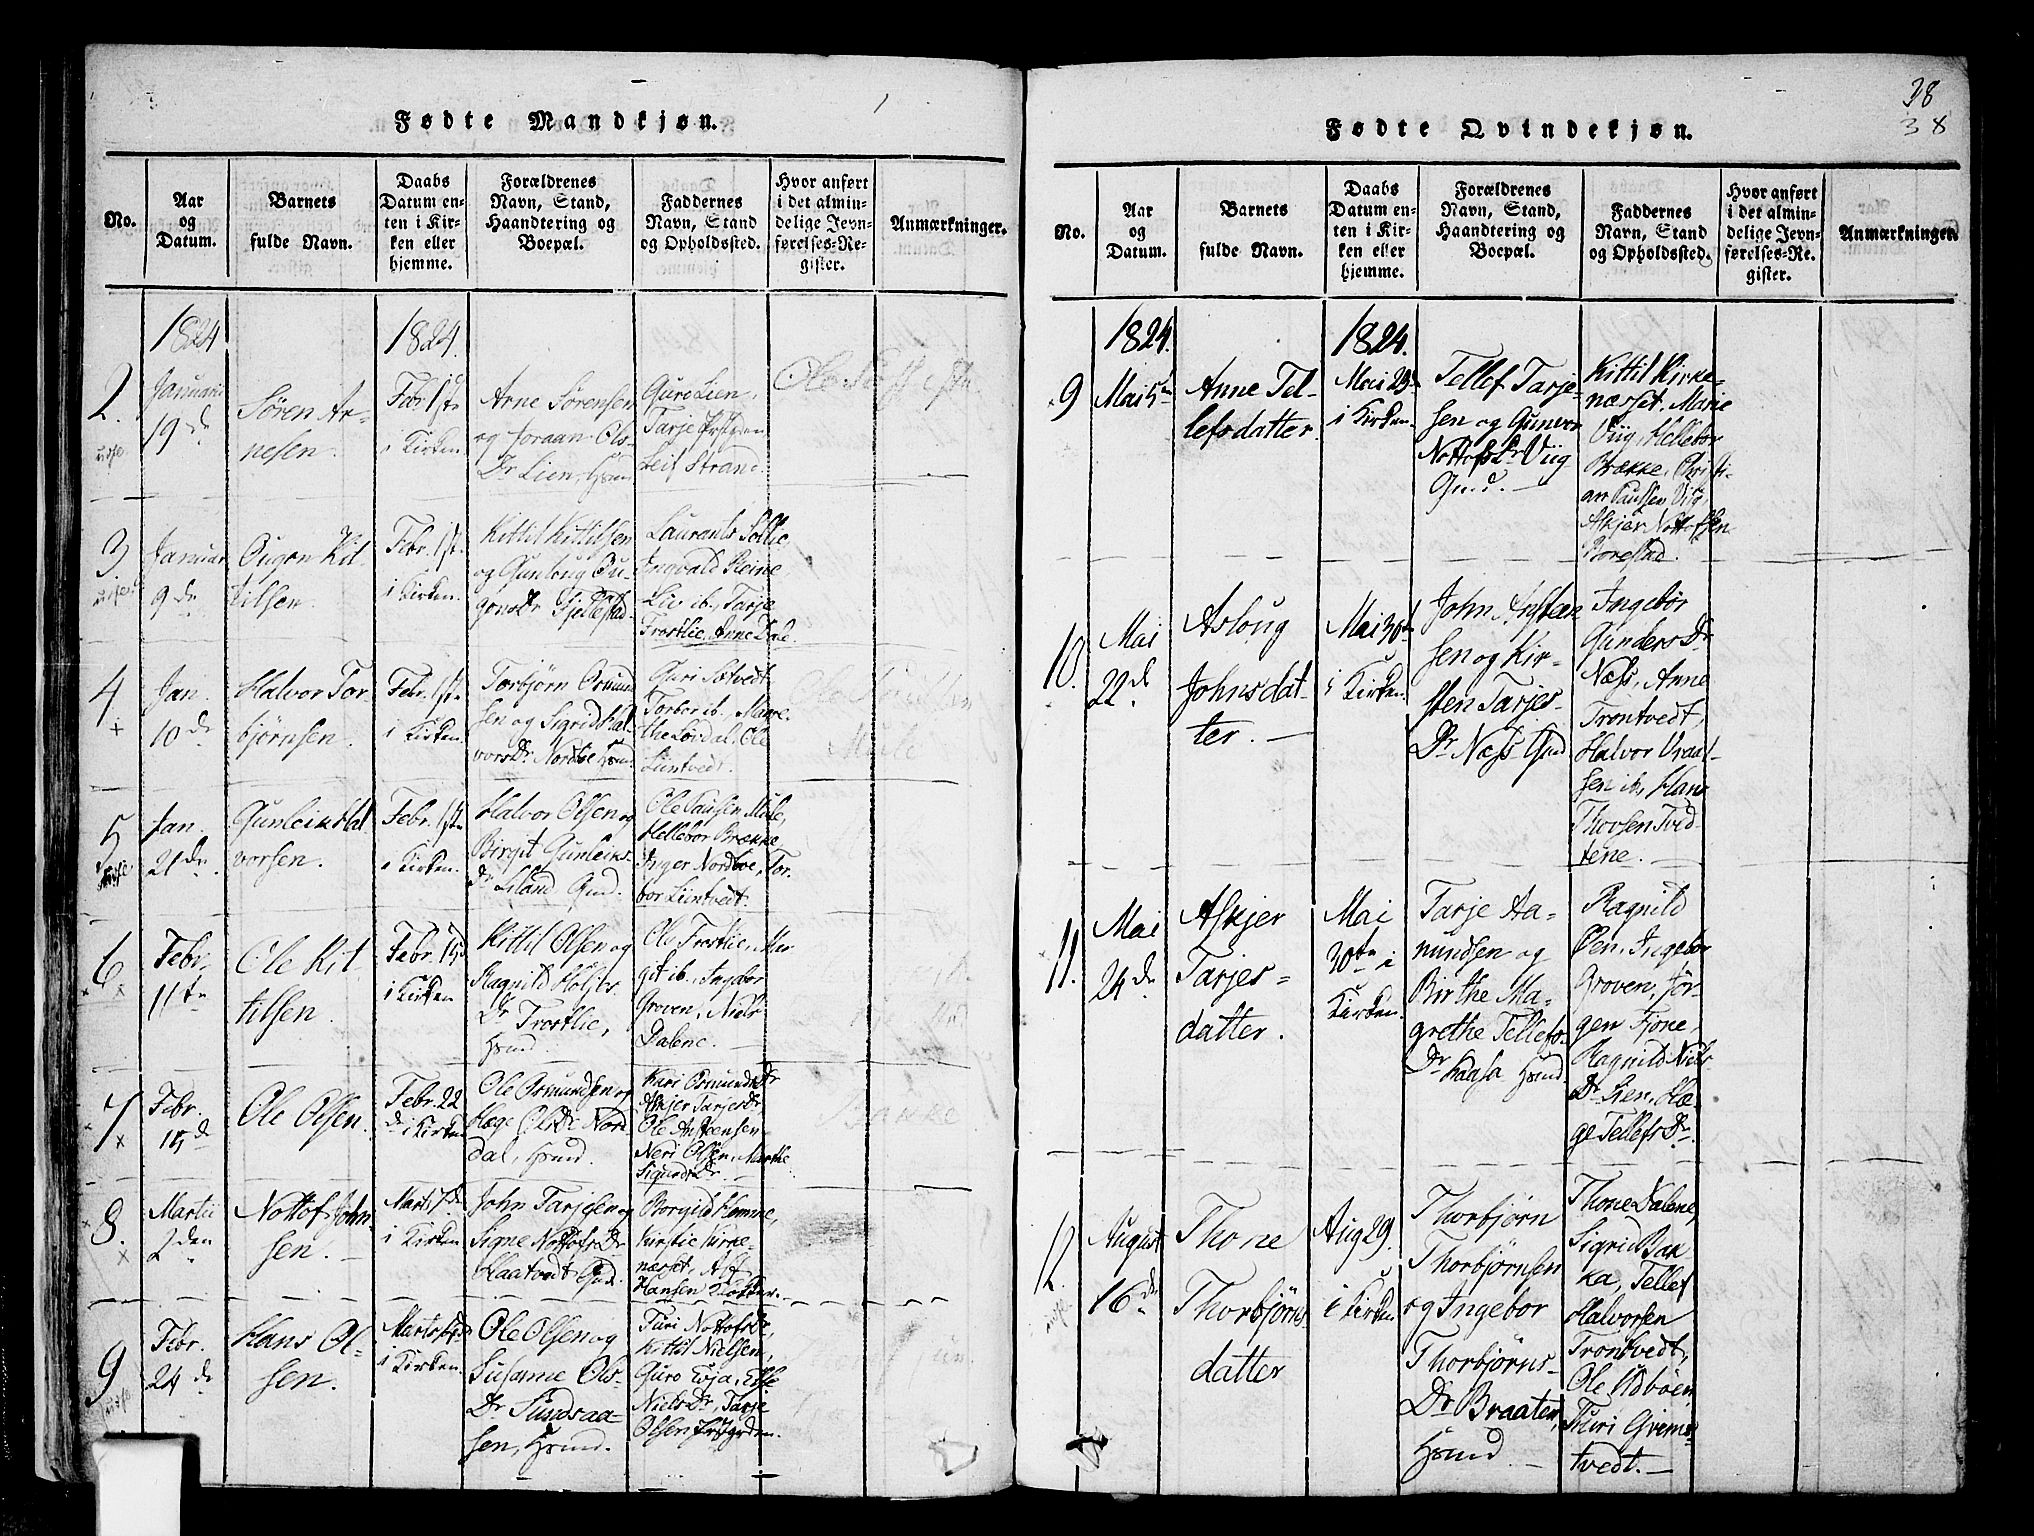 Fødte Mandkjøn.
No.
Aar
og
Datum.
Barnets
fulde Navn.
Daabs
Datum en-
ten i Kir-
ken eller
hjemme.
Forældrenes
Navn, Stand,
Haandtering og
Boepæl.
Faddernes
Navn, Stand
og Opholdssted.
Hvor anført
i det almin-
delige Jevn-
førelses-Re-
gister.
Anmærkninger.
1824
1824.
2.
Januarii
19de
Søren Ar-
nesen.
Febr 1ste
i Kirken
Arne Sørensen
og Joraan Ols-
Dr Lien, Hsmd
Gure Lien,
Tarje
Leif Strand.
3.
Januar
9de
Ougon Kit-
tilsen.
Febr. 1ste
i Kirken.
Kittil Kittilsen
og Gunloug Ou-
gonsDr Fjellestad.
Laurants Sollie,
Ingvald Reine,
Liv ib., Tarje
Frostlie, Anne Dale.
4
+
Jan.
10de
Halvor Tor-
bjørnsen.
Febr. 1ste
i Kirken.
Torbjørn Osmund-
sen og Sigrid Hal-
vorsDr Nordboe Hsmd
Guri Sætvedt
Torbor ib., Mare-
the Løvdal, Ole
Liintvedt.
5
Jan.
21de.
Gunleik Hal
vorsen.
Febr. 1ste
i Kirken.
Halvor Olsen og
Birgit Gunleiks-
Dr Liland Gmd.
Ole Paulsen Mule,
Hellebor Brække,
Inger Nordboe, Tor-
bor Liintvedt.
6
x x
Febr.
11te
Ole Kit-
tilsen.
Febr. 15de
i Kirken
Kittil Olsen og
Ragnild Holjes-
Dr Frostlie,
Hsmd.
Ole Frostlie, Mar-
git ib., Ingebor
Groven, Niels
Dalene.
7
x
Febr.
15de
Ole Olsen.
Febr. 22
de i Kirken
Ole Osmundsen og
Hæge OlsDr Nord-
dal, Hsmd.
Kari OsmundsDr
Askjer TarjesDr
Ole Anstensen
Neri Olsen, Marthe
SigurdsDr.
8.
x
Martii
2den
Nottof John-
sen.
Marts 7de
i Kirken
John Tarjesen og
Signe NottofsDr
Haatvedt Gmd.
Borgild Homme,
Kirstie Kirke-
næsset, Alf
Hansen Klokker.
9
Febr.
24de
Hans Ol-
sen.
i Kirken.
Ole Olsen og
Susanne Ols-
Dr Sundsaa-
sen, Hsmd.
Turi NottofsDr,
Kittil Nielsen,
Guro Evja, Else
NielsDr, Tarje
Olsen
Fødte Qvindekjøn.
38
38
No.
Aar
og
Datum.
Barnets
fulde Navn.
Daabs
Datum en-
ten i Kir-
ken eller
hjemme.
Forældrenes
Navn, Stand,
Haandtering og
Boepæl.
Faddernes
Navn, Stand
og Opholdssted.
Hvor anført
i det almin-
delige Jevn-
førelses-Re-
gister.
Anmærkninger.
1824.
1824.
9
Mai 5te
Anne Tel-
lefsdatter.
Mai 23de
i Kirken.
Tellef Tarje-
sen og Gunvor
NottofsDr Viig
Gmd.
Kittil Kirke-
næsset, Marie
Viig, Hellebor
Brække, Christi-
an Paulsen Viig,
Askjer Nottofsen
Borestad.
10.
Mai
22de
Asloug
Johnsdat-
ter.
Mai 30te
i Kirken.
John Ansten
sen og Kir-
sten Tarjes-
Dr Næss Gmd
Ingebor
GundersDr
Næss, Anne
Trontvedt,
Halvor Vraal-
sen ib, Hans
Thovsen Tved-
tene.
11.
Mai
24de
Askjer
Tarjes-
datter.
Mai
30te i
Kirken.
Tarje Aa-
nundsen og
Birthe Ma-
grethe Tellefs-
Dr Kaasa Hsmd.
Ragnild
Øen, Ingebor
Groven, Jør-
gen Fjone,
Ragnild Niels-
Dr Lien, Hæ-
ge TellefsDr.
12
August
16de
Thone
Thorbjørns-
datter
Aug 29.
i Kirken
Thorbjørn
Thorbjørnsen
og Ingebor
Thorbjørns-
Dr Braaten,
Hsmd
Thone Dalene,
Sigrid Bak-
ka, Tellef
Halvorsen
Trontvedt,
Ole Udbøen
Thuri Grims-
tvedt.